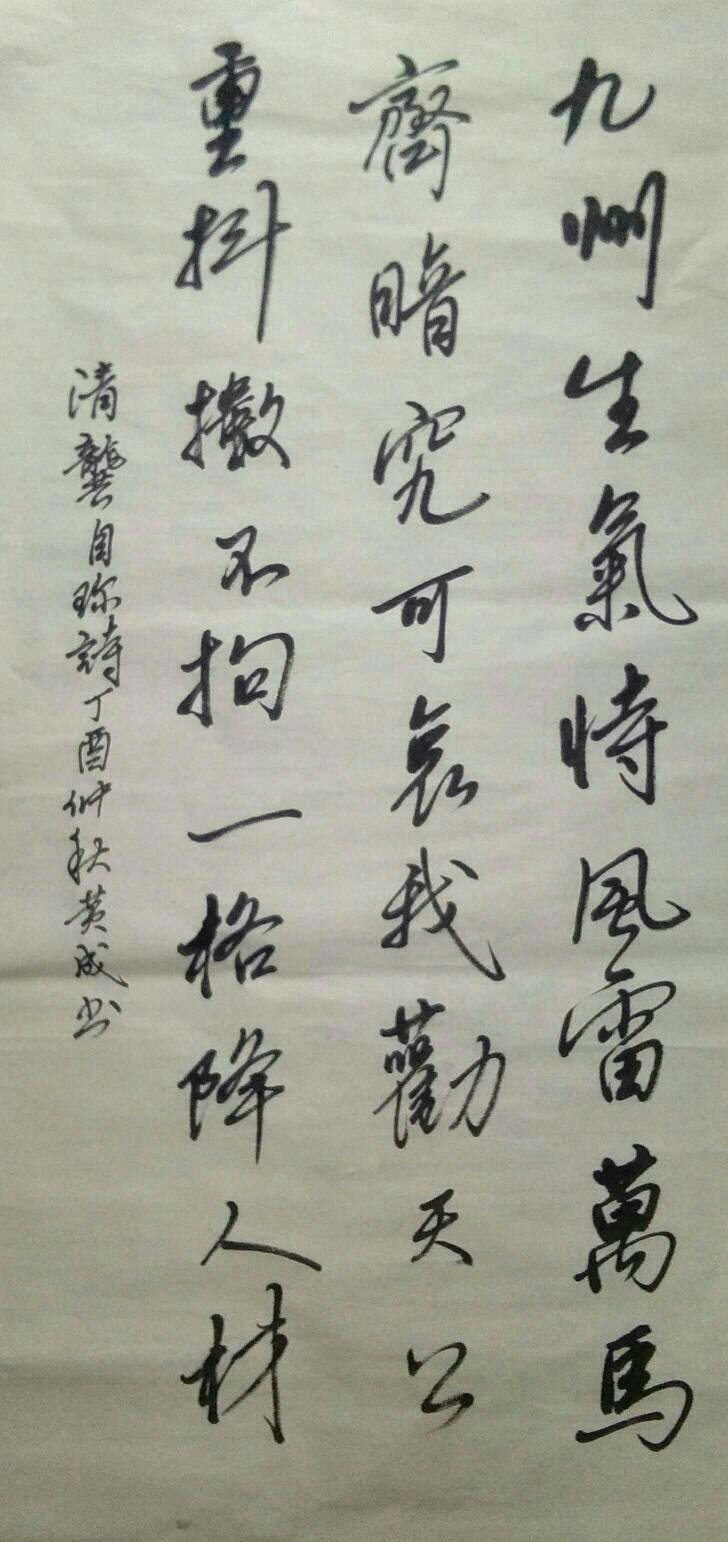 九州生氣恃風雷萬馬
齊暗究可哀我勸天公
重抖擻不拘一格降人材
清龔自珍詩丁酉仲秋黄成书